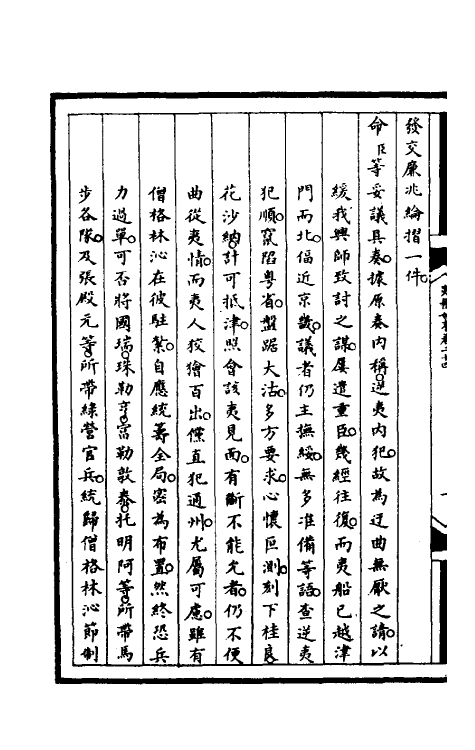 發交廉兆綸摺一件。
命臣等妥議具奏。據原奏內稱。逆夷內犯。故為迂曲無厭之請。以
緩我興師致討之謀。屢遣重臣。幾經往復。而夷船已越津
門而北。偪近京畿。議者仍主撫綏。無多准備等語。查逆夷
犯順。竄陷粵省。盤踞大沽。多方要求。心懷叵測。刻下桂良
花沙納。計可抵津。照會該夷見面。有斷不能允者。仍不便
曲從夷情。而夷人狡獪百出。儻直犯通州。尤屬可慮。雖有
僧格林沁在彼駐紮。自應統籌全局。密為布置。然終恐兵
力過單。可否將國瑞。珠勒亨。富勒敦泰。托明阿等。所帶馬
步各隊。及張殿元等。所帶綠營官兵。統歸僧格林沁節制